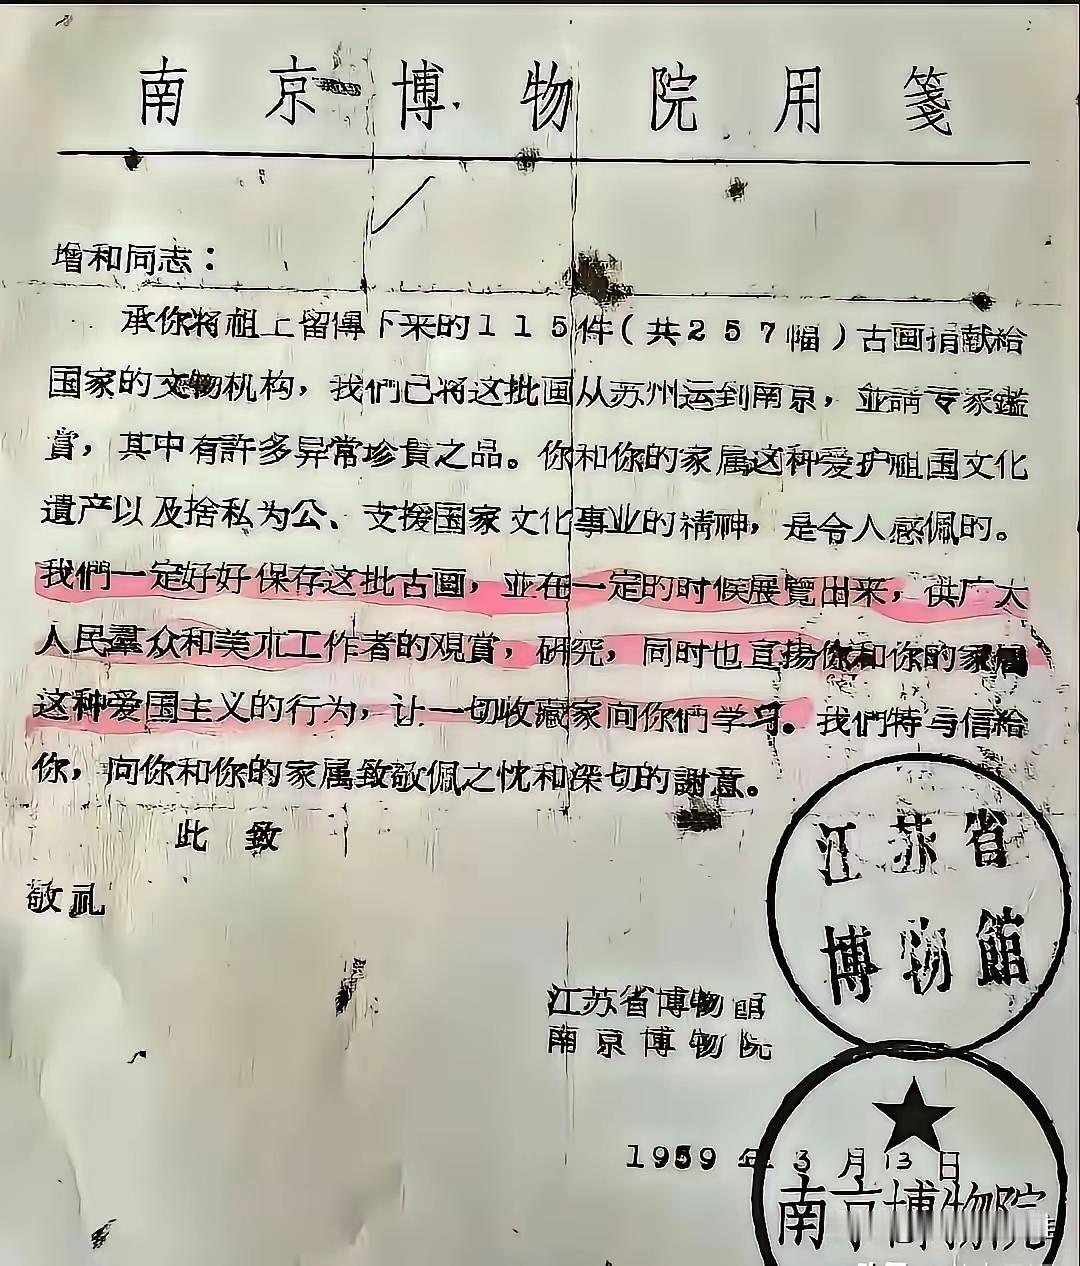 南京博物院用箋
增和同志：
承你将祖上留傳下来的115件(共257幅)古画捐献給
国家的文物机构，我們已将这批画从苏州运到南京，並請专家鑑
賞，其中有許多异常珍貴之品。你和你的家属这种爱护祖国文化
遺产以及捨私为公、支援国家文化事业的精神，是令人感佩的。
我們一定好好保存这批古画，並在一定的时候展覽出来，供广大
人民羣众和美朮工作者的观賞，研究，同时也宣扬你和你的家属
这种爱国主义的行为，让一切收藏家向你們学习。我們特与信給
你，向你和你的家属致敬佩之忱和深切的謝意。
此致
敬礼
江苏省
博物館
江苏省博物館
南京博物院
1959年3月13日
南京博物院